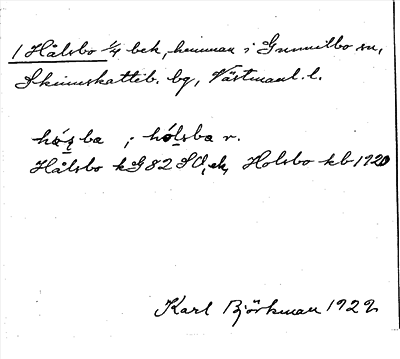 1 Hålsbo 1/4 bek, hemman i Gunnilbo sn,
Skinnskatteb. bg, Västmanl. l.
hǫ́sba ; hǫ́lsba r.
Hålsbo kG 82 SO, ek, Holsbo kb 1720
Karl Björkman 1922